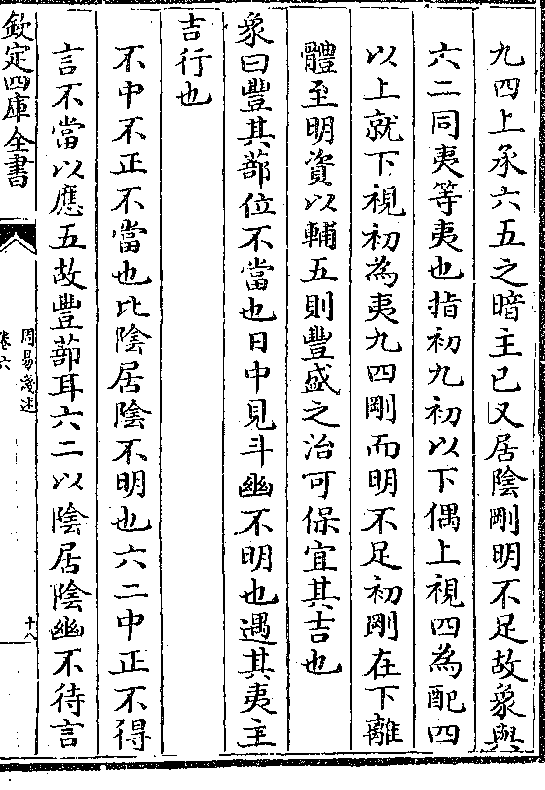 九四上承六五之暗主已又居陰剛明不足故象與
六二同夷等夷也指初九初以下偶上視四為配四
以上就下視初為夷九四剛而明不足初剛在下離
體至明資以輔五則豐盛之治可保宜其吉也
象曰豐其蔀位不當也日中見斗幽不明也遇其夷主
吉行也
不中不正不當也比陰居陰不明也六二中正不得
言不當以應五故豐蔀耳六二以陰居陰幽不待言
欽定四庫全書
周易淺述
卷六
十八